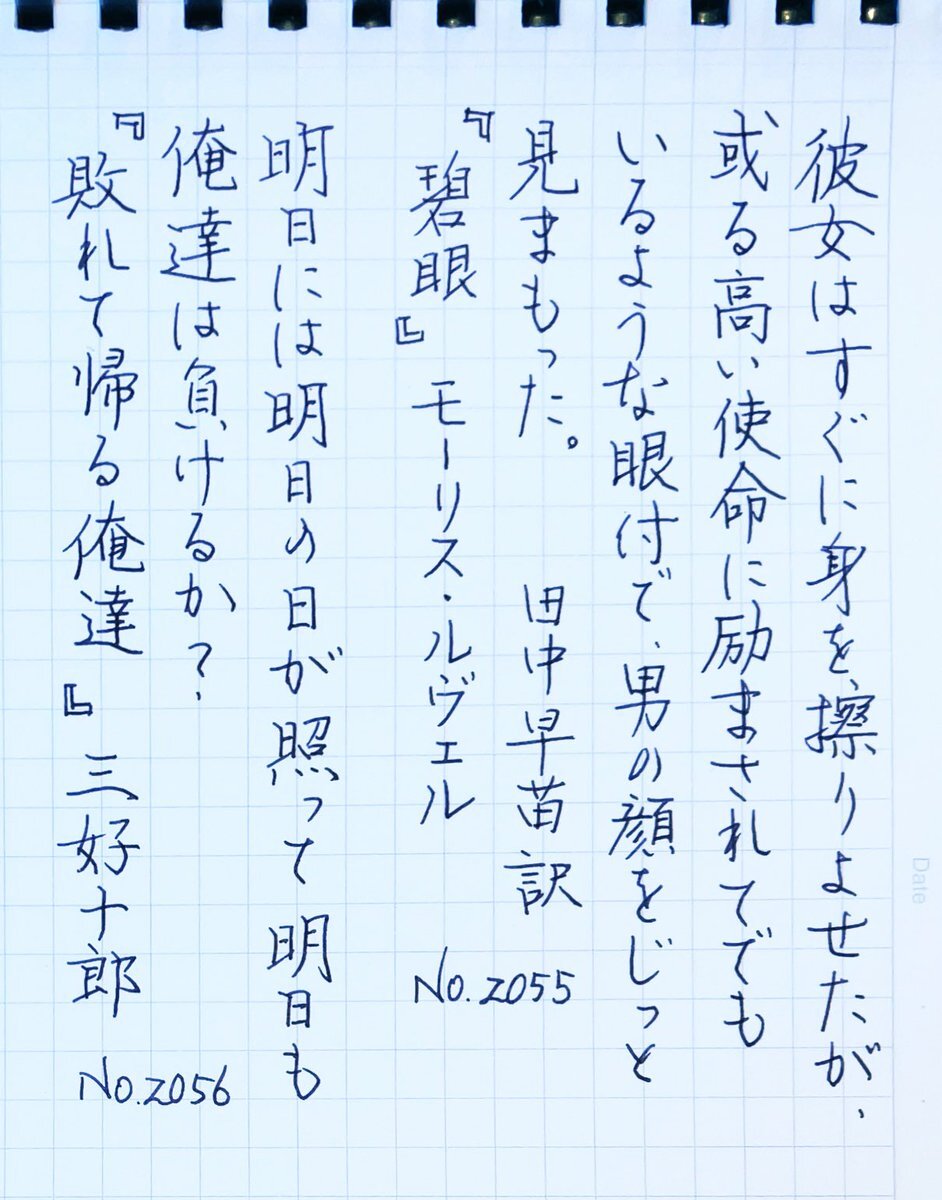 彼女はすぐに身を擦りよせたが、
或る高い使命に励まされてでも
いるような眼付で、男の顔をじっと
見まもった。 田中早苗訳
『碧眼』 モーリス・ルヴェル
No.2055
明日には明日の日が照って 明日も
俺達は負けるか?
『敗れて帰る俺達』三好十郎
No.2056
Date